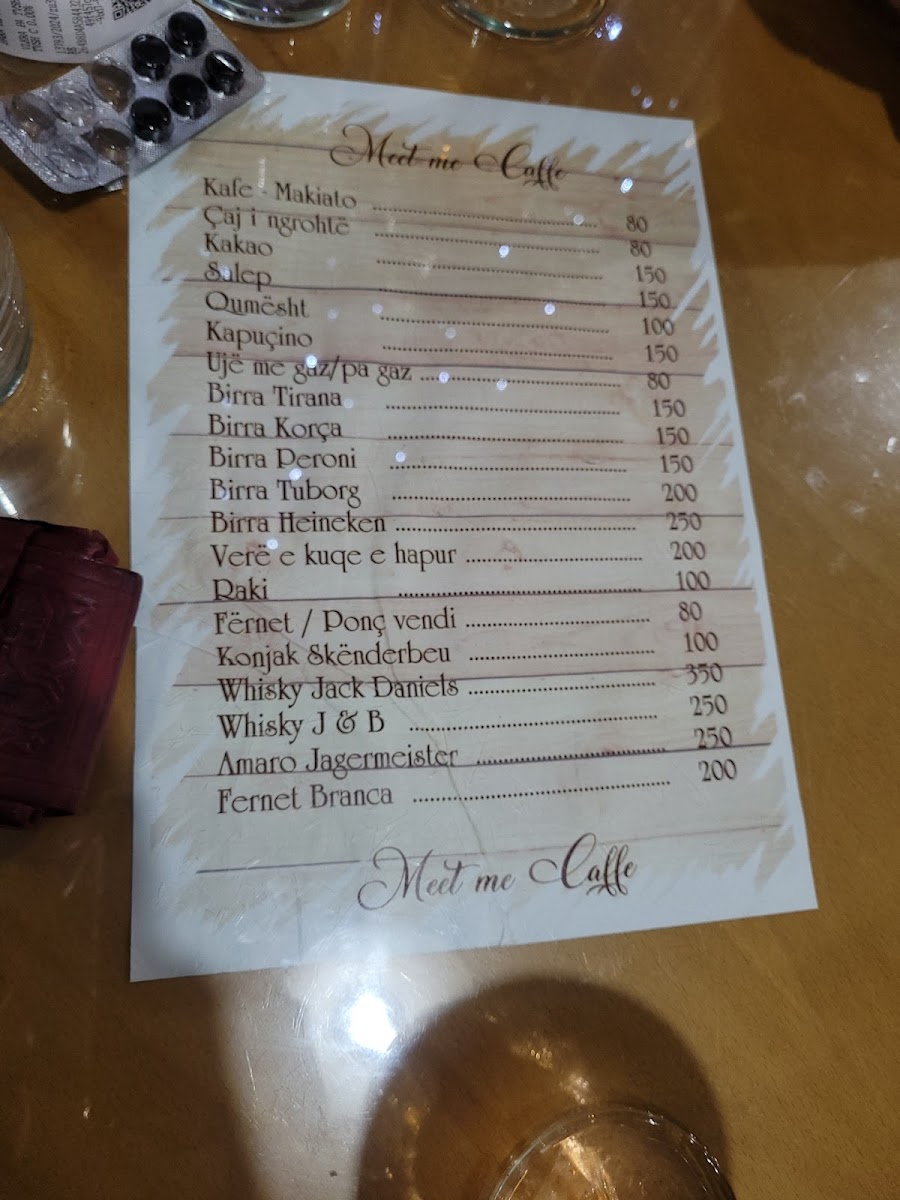 Meet me Caffe
Kafe - Makiato ........ 80
Çaj i ngrohtë ........ 80
Kakao ........ 150
Salep ........ 150
Qumësht ........ 100
Kapuçino ........ 150
Ujë me gaz/pa gaz ........ 80
Birra Tirana ........ 150
Birra Korça ........ 150
Birra Peroni ........ 150
Birra Tuborg ........ 200
Birra Heineken ........ 250
Verë e kuqe e hapur ........ 200
Raki ........ 100
Fërnet / Ponç vendi ........ 80
Konjak Skënderbeu ........ 100
Whisky Jack Daniels ........ 350
Whisky J & B ........ 250
Amaro Jagermeister ........ 250
Fernet Branca ........ 200
Meet me Caffe